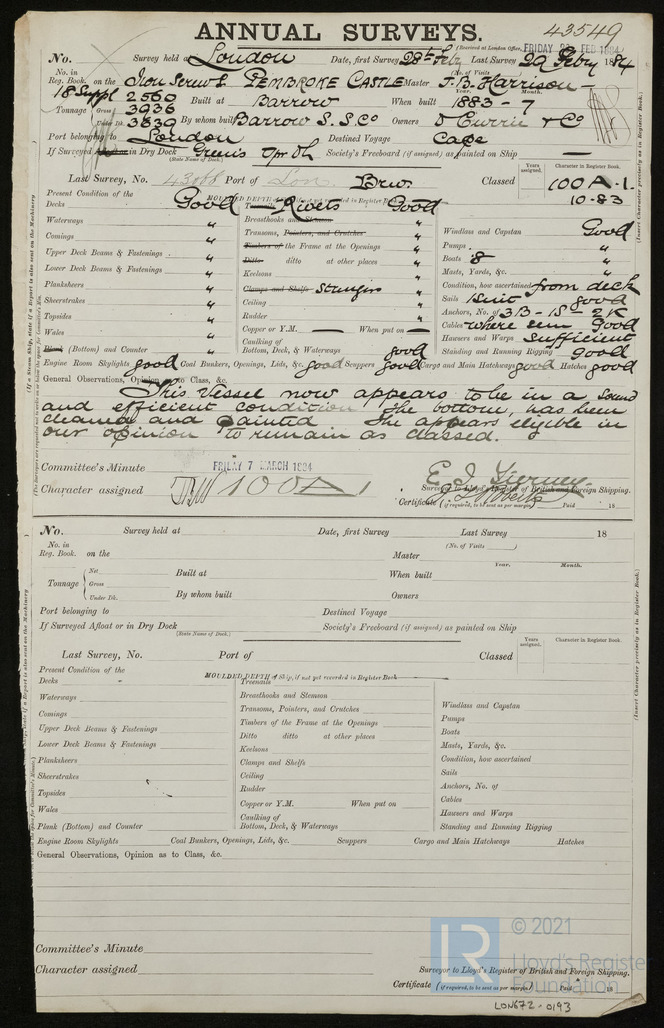 ANNUAL SURVEYS. 43549
(Received at London Office, FRIDAY 29 FEB 1884)
No. Survey held at London Date, first Survey 28th Feby Last Survey 29 Febry 1884
(No. of Visits )
No. in Reg. Book. on the Iron Screw S. PEMBROKE CASTLE Master F. B. Harrison
18 Suppl
Tonnage Net 2560 Built at Barrow When built Year. 1883 - Month. 7
Gross 3936
Under Dk. 3839 By whom built Barrow S. S. Co Owners D Currie & Co
Port belonging to London Destined Voyage Cape
If Surveyed Afloat or in Dry Dock Green's Upr Dk Society's Freeboard (if assigned) as painted on Ship —
(State Name of Dock.)
Years assigned. Character in Register Book.
Last Survey, No. 43088 Port of Lon Brw. Classed 100 A. 1.
10.83
Present Condition of the MOULDED DEPTH of Ship, if not yet recorded in Register Book
Decks Good Treenails Rivets Good
Waterways " Breasthooks and Stemson "
Comings " Transoms, Pointers, and Crutches "
Upper Deck Beams & Fastenings " Timbers of the Frame at the Openings "
Lower Deck Beams & Fastenings " Ditto ditto at other places "
Planksheers " Keelsons "
Sheerstrakes " Clamps and Shelfs Stringers "
Topsides " Ceiling "
Wales " Rudder "
Plank (Bottom) and Counter " Copper or Y.M. — When put on —
Caulking of Bottom, Deck, & Waterways good
Windlass and Capstan Good
Pumps "
Boats 8 "
Masts, Yards, &c. "
Condition, how ascertained from deck
Sails 1 Suit good
Anchors, No. of 3 B - 1 S - 2 K
Cables where seen Good
Hawsers and Warps Sufficient
Standing and Running Rigging Good
Engine Room Skylights good Coal Bunkers, Openings, Lids, &c. good Scuppers good Cargo and Main Hatchways good Hatches good
General Observations, Opinion as to Class, &c.
This vessel now appears to be in a sound
and efficient condition The bottom, has been
cleaned and painted She appears eligible in
our opinion to remain as classed.
Committee's Minute FRIDAY 7 MARCH 1884
Character assigned 100 A 1
E. J. Tierney
Surveyor to Lloyd's Register of British and Foreign Shipping.
Certificate (if required, to be sent as per margin) Paid 18
(If a Steam Ship, state if a Report is also sent on the Machinery
(Insert Character precisely as in Register Book.)
No. Survey held at Date, first Survey Last Survey 18
(No. of Visits )
No. in Reg. Book. on the Master
Year. Month.
Tonnage Net Built at When built
Gross
Under Dk. By whom built Owners
Port belonging to Destined Voyage
If Surveyed Afloat or in Dry Dock Society's Freeboard (if assigned) as painted on Ship
(State Name of Dock.)
Years assigned. Character in Register Book.
Last Survey, No. Port of Classed
Present Condition of the MOULDED DEPTH of Ship, if not yet recorded in Register Book
Decks Treenails
Waterways Breasthooks and Stemson
Comings Transoms, Pointers, and Crutches
Upper Deck Beams & Fastenings Timbers of the Frame at the Openings
Lower Deck Beams & Fastenings Ditto ditto at other places
Planksheers Keelsons
Sheerstrakes Clamps and Shelfs
Topsides Ceiling
Wales Rudder
Plank (Bottom) and Counter Copper or Y.M. When put on
Caulking of Bottom, Deck, & Waterways
Windlass and Capstan
Pumps
Boats
Masts, Yards, &c.
Condition, how ascertained
Sails
Anchors, No. of
Cables
Hawsers and Warps
Standing and Running Rigging
Engine Room Skylights Coal Bunkers, Openings, Lids, &c. Scuppers Cargo and Main Hatchways Hatches
General Observations, Opinion as to Class, &c.
Committee's Minute
Character assigned
Surveyor to Lloyd's Register of British and Foreign Shipping.
Certificate (if required, to be sent as per margin) Paid 18
(Insert Character precisely as in Register Book.)
LR © 2021
Lloyd's Register
Foundation
LON672-0193